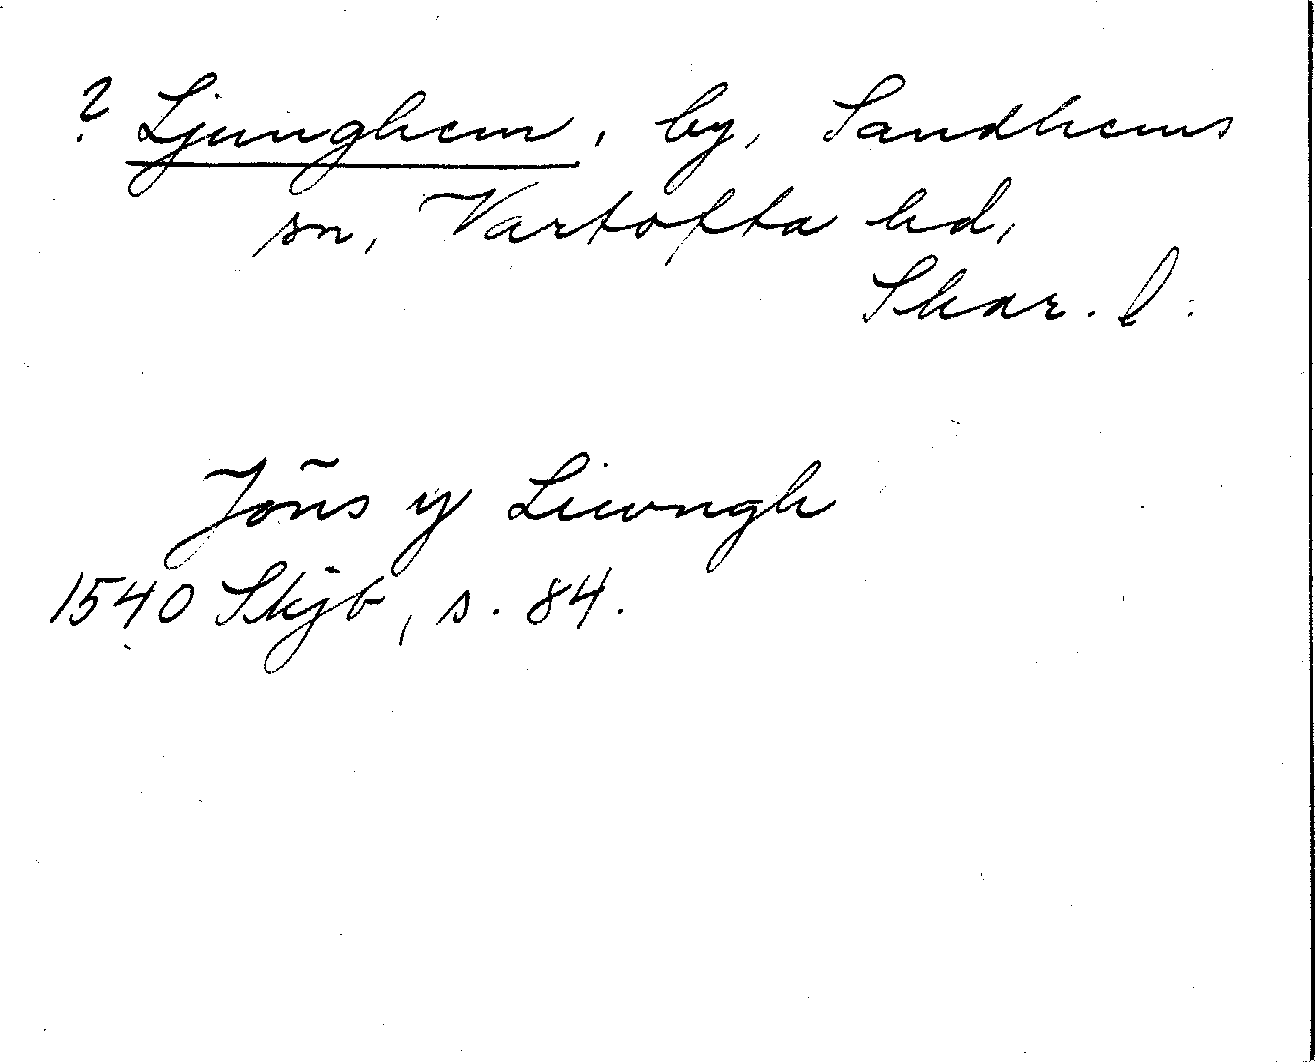 ? Ljunghem, by, Sandhems
sn, Vartofta hd,
Skar. l.
Jöñs y Liwngh
1540 Skjb, s. 84.